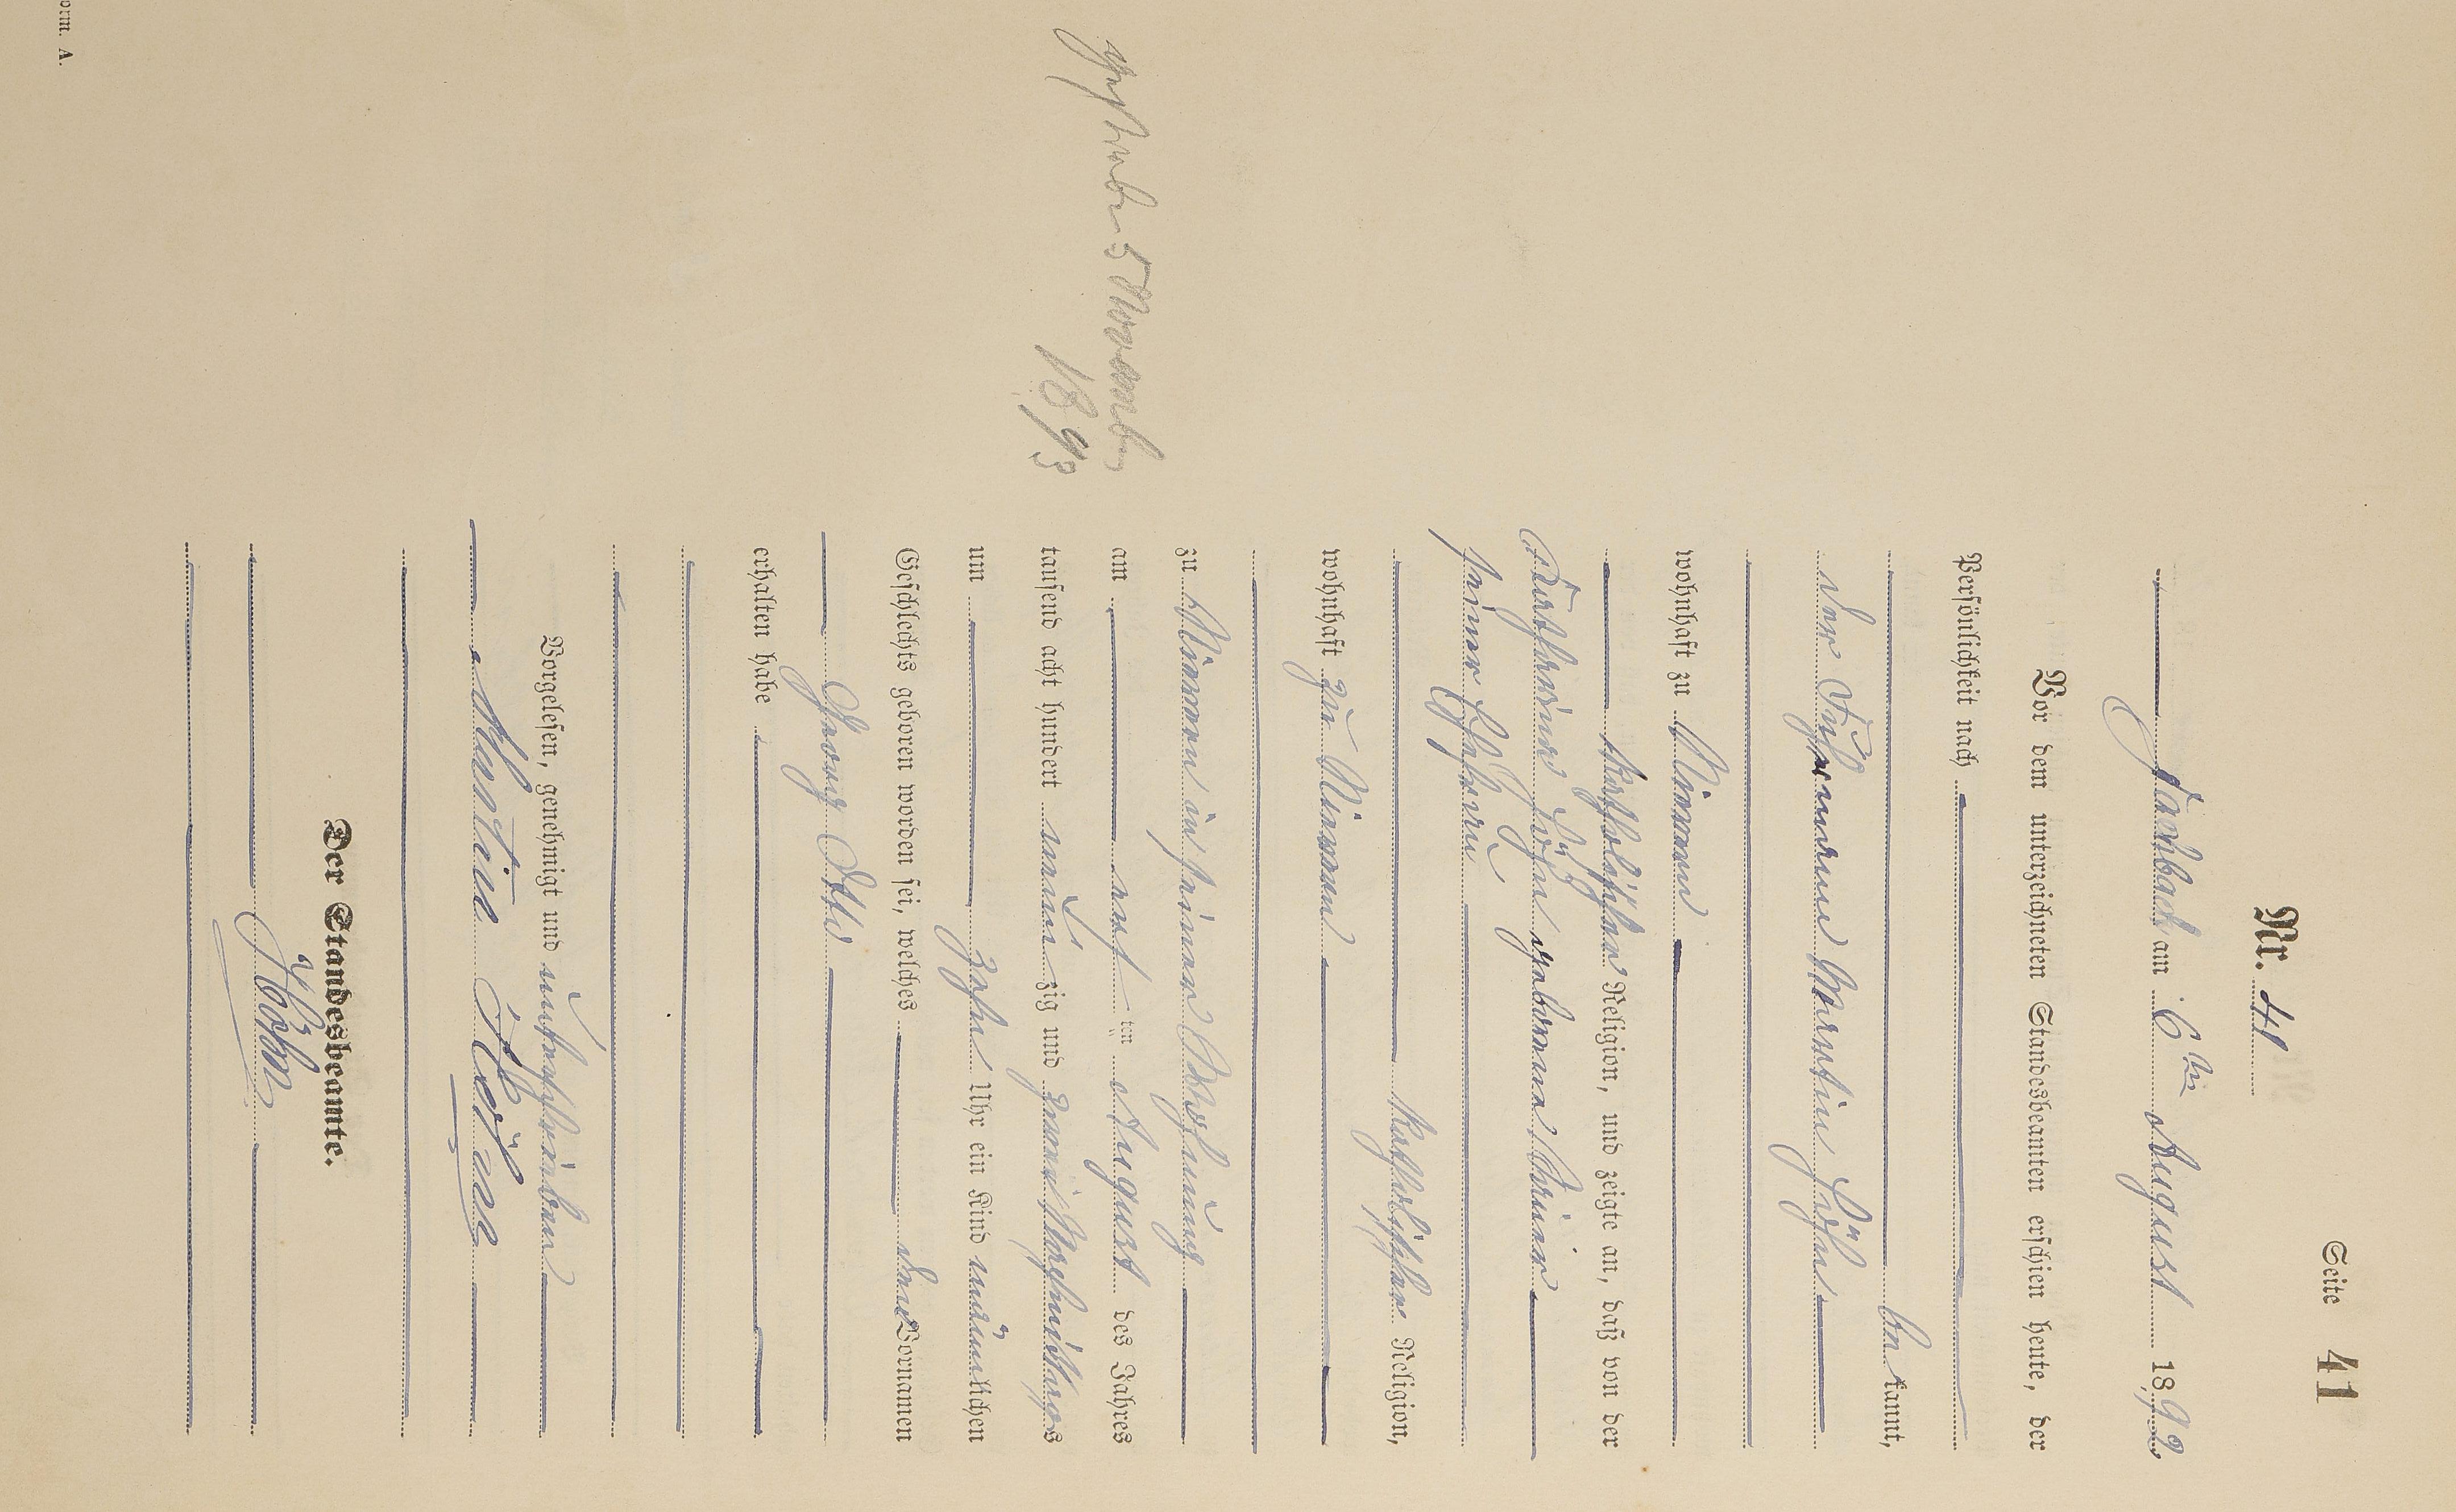 Seite 41
Nr. 41
Jachbach am 6ten August 1892
Vor dem unterzeichneten Standesbeamten erschien heute, der
Persönlichkeit nach
bekannt,
der Martin Höhn
wohnhaft zu
katholischer Religion, und zeigte an, daß von der
Katharina Höhn geborene
seiner Ehefrau
katholischer Religion,
wohnhaft zu
zu in seiner Wohnung
am ten August des Jahres
tausend acht hundert neunzig und zwei Vormittags
um zehn Uhr ein Kind männlichen
Geschlechts geboren worden sei, welches den Vornamen
Georg Otto
erhalten habe
Vorgelesen, genehmigt und unterschrieben
Martin Höhn
Der Standesbeamte.
Höhn
gestorben 5 November
1893
orm. A.